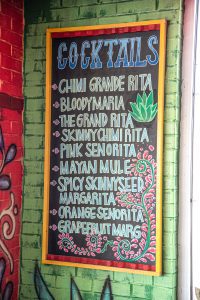 COCKTAILS
CHIMI GRANDE RITA
BLOODY MARIA
THE GRAND RITA
SKINNY CHIMI RITA
PINK SENORITA
MAYAN MULE
SPICY SKINNY SEED
MARGARITA
ORANGE SENORITA
GRAPEFRUIT MARG